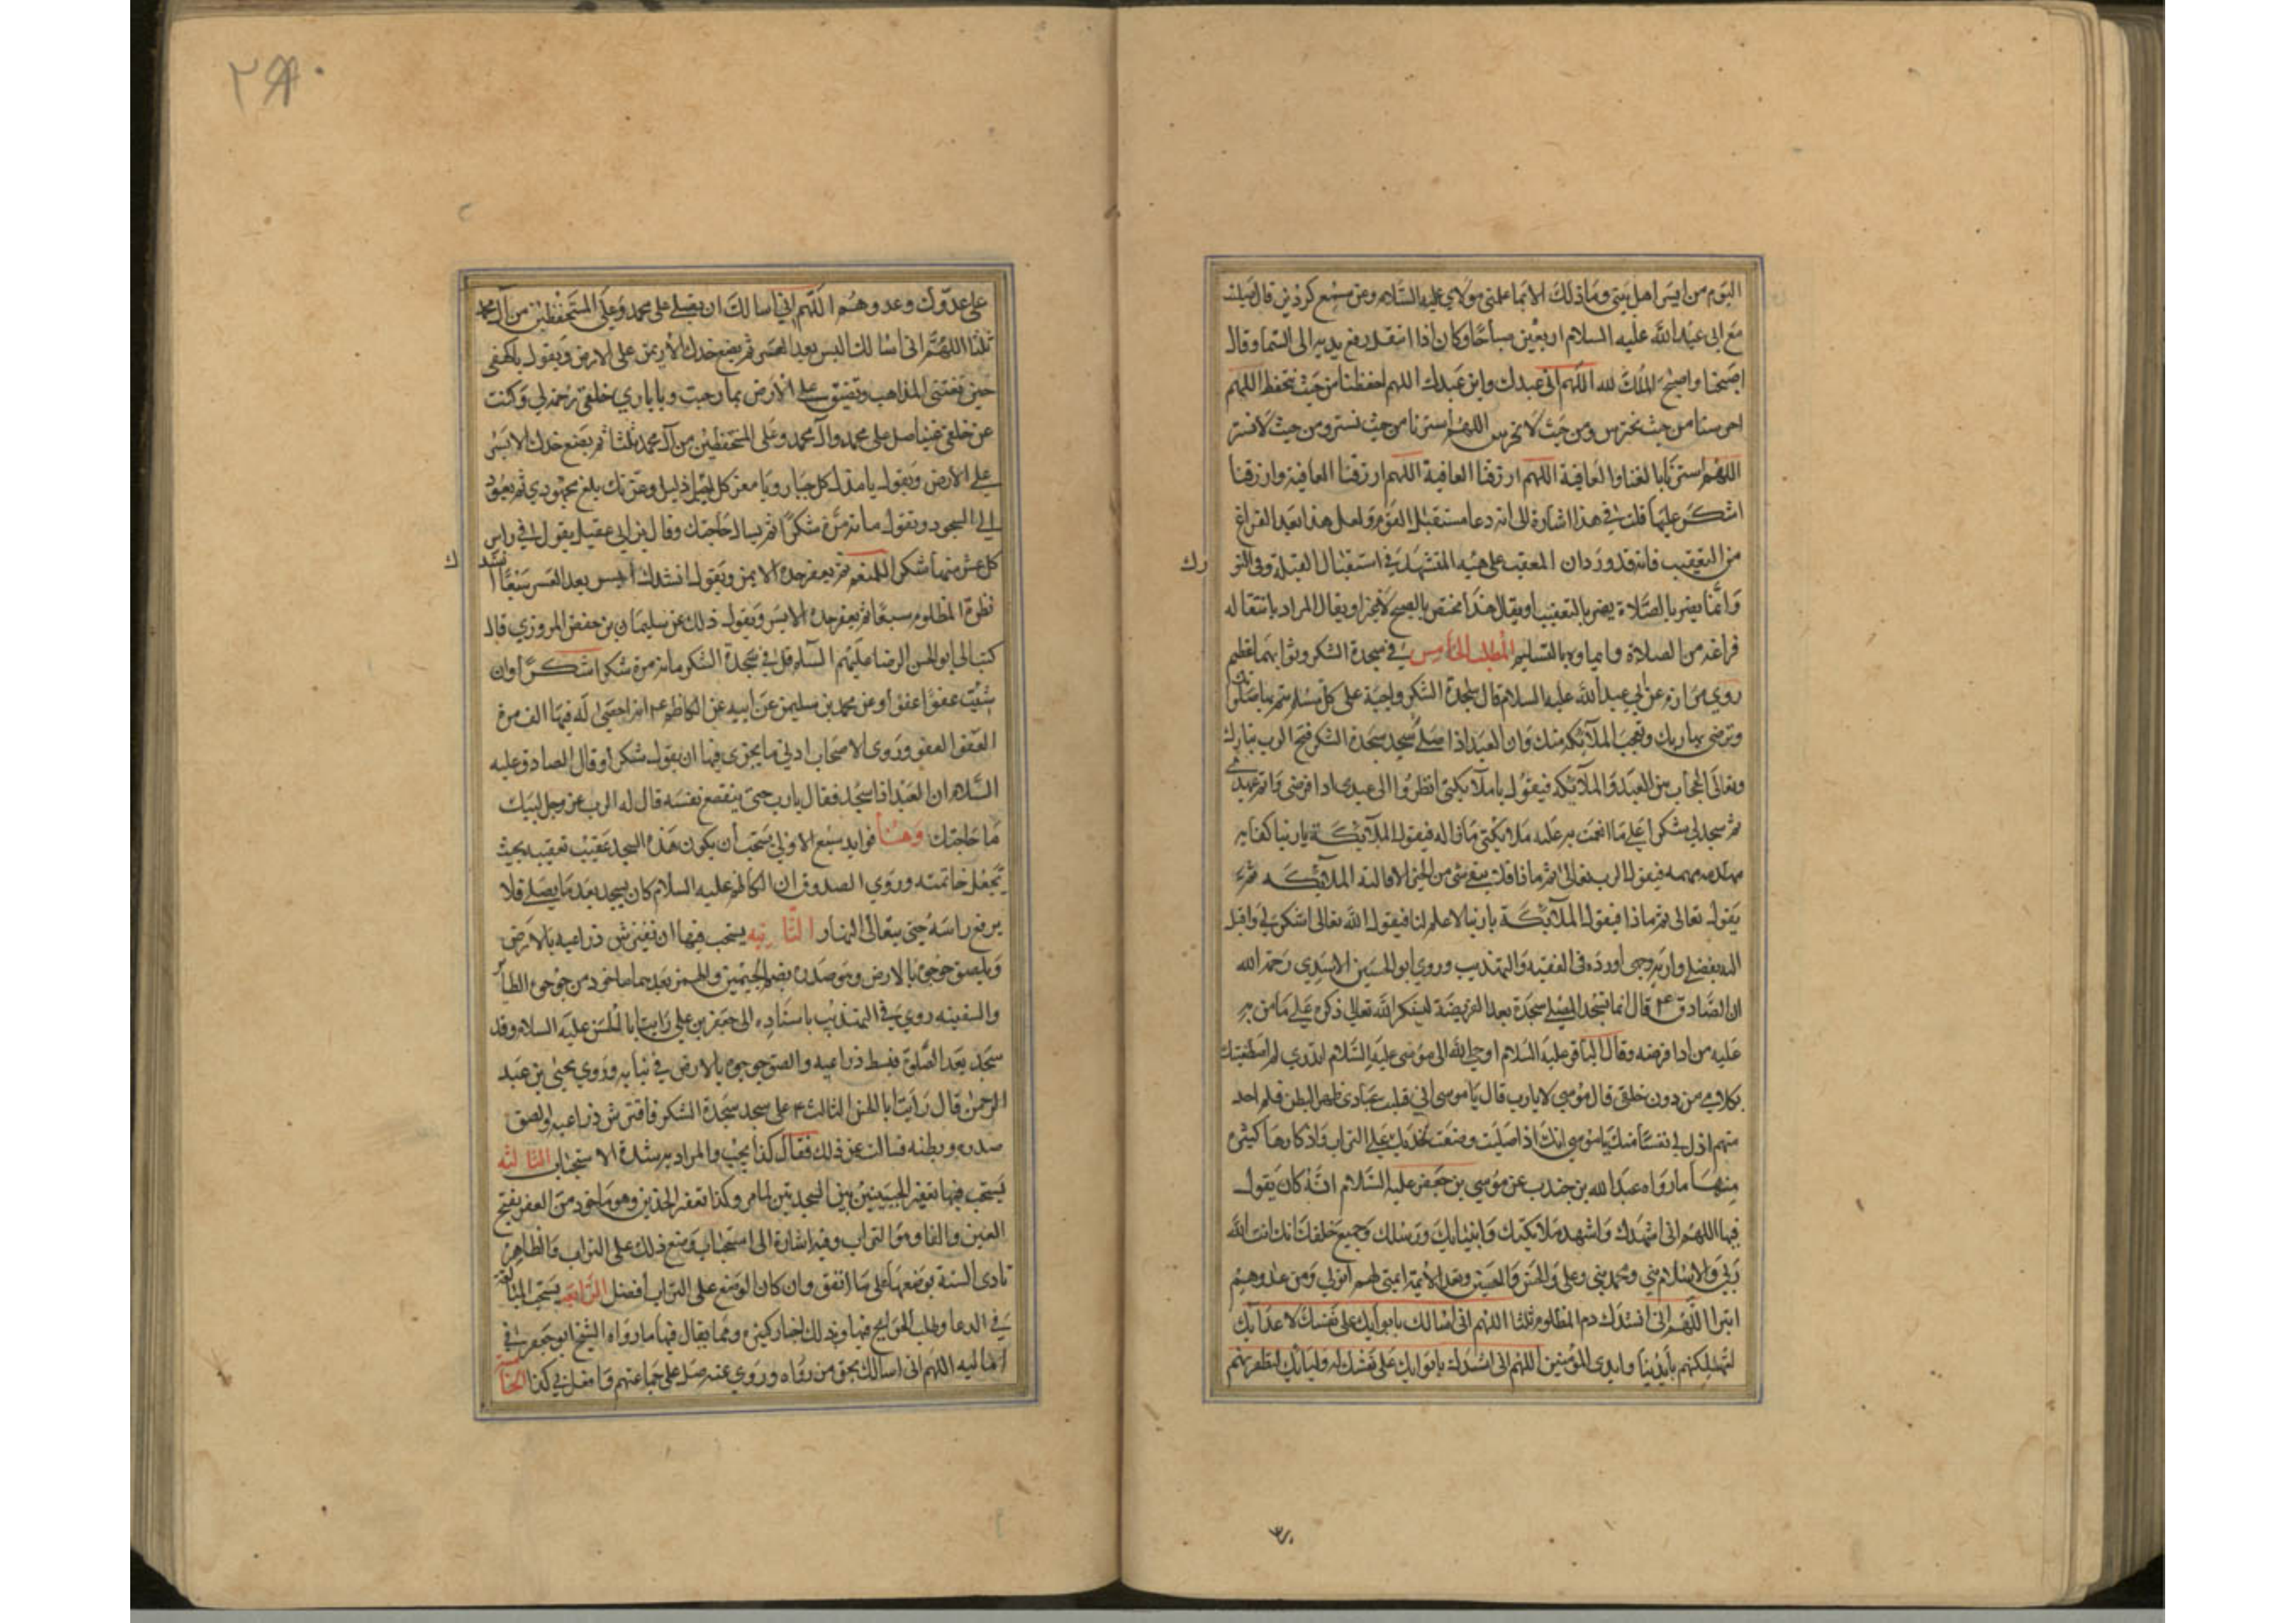 اليوم من ايسر اهل بيتي وما ذلك الا بما علمني مولاي عليه السلام وعن مسمع كردين قال صليت
مع ابي عبد الله عليه السلام اربعين صباحا وكان اذا انفتل رفع يديه الى السما وقال
اصبحنا واصبح الملك لله اللهم اني عبدك وابن عبدك اللهم احفظنا من حيث نحتفظ اللهم
احرسنا من حيث نحترس ومن حيث لا نحترس اللهم استرنا من حيث نستتر ومن حيث لا نستتر
اللهم استرنا بالغنا والعافية اللهم ارزقنا العافية اللهم ارزقنا العافية وارزقنا
الشكر عليها قلت في هذا اشارة الى انه دعا مستقبل القوم ولعل هذا بعد الفراغ
من التعقيب فانه قد ورد ان المعقب على هيئة المتشهد في استقبال القبلة وفي التو
رك
وانما يضر بالصلاة يضر بالتعقيب او يقال هذا مختص بالصبح لا غير او يقال المراد بانتقاله
فراغه من الصلاة وايماوه بالتسليم المطلب الخامس في سجدة الشكر وثوابهما عظيم
روي مرازم عن ابي عبد الله عليه السلام قال سجدة الشكر واجبة على كل مسلم تتم بها صلاتك
وترضي بها ربك وتعجب الملائكة منك وان العبد اذا صلى ثم سجد سجدة الشكر فتح الرب تبارك
وتعالى الحجاب بين العبد والملائكة فيقول يا ملائكتي انظروا الى عبدي ادا فرضي واتم عهدي
ثم سجد لي شكرا على ما انعمت به عليه ملائكتي ماذا له فيقول الملائكة يا ربنا كفاية
مهمه فيقول الرب تعالى ثم ماذا فلا يبقى شي من الخير الا قالته الملائكة ثم
يقول تعالى ثم ماذا فيقول الملائكة يا ربنا لا علم لنا فيقول الله تعالى اشكر له واقبل
اليه بفضلي واريه وجهي اورده في الفقيه والتهذيب وروي ابو الحسين الاسدي رحمه الله
ان الصادق ع قال انما يسجد المصلي سجدة بعد الفريضة ليشكر الله تعالى ذكره على ما من به
عليه من ادا فرضه وقال الباقر عليه السلام اوحى الله الى موسى عليه السلام اتدري لم اصطفيتك
بكلامي من دون خلقي قال موسى لا يا رب قال يا موسى اني قلبت عبادي ظهرا لبطن فلم اجد
منهم اذل لي نفسا منك يا موسى انك اذا صليت وضعت خديك على التراب واذكارها كثيرة
منها ما رواه عبد الله بن جندب عن موسى بن جعفر عليه السلام انه كان يقول
فيها اللهم اني اشهدك واشهد ملائكتك وانبيائك ورسلك وجميع خلقك انك انت الله
ربي والاسلام ديني ومحمد نبيي وعلي والحسن والحسين وتعد الائمة ائمتي بهم اتولى ومن عدوهم
اتبرا اللهم اني انشدك دم المظلوم ثلثا اللهم اني اسالك بايوائك على نفسك لاعدائك
لتهلكنهم بايدينا وايدي المؤمنين اللهم اني انشدك بايوائك على نفسك لاوليائك لتظفرنهم
على عدوك وعدوهم اللهم اني اسالك ان تصلي على محمد وعلى المستحفظين من آل محمد
ثلثا اللهم اني اسالك اليسر بعد العسر ثم يضع خدك الايمن على الارض ويقول يا كهفي
حين تعييني المذاهب وتضيق علي الارض بما رحبت ويا باري خلقي رحمة لي وكنت
عن خلقي غنيا صل على محمد وآل محمد وعلى المستحفظين من آل محمد ثلثا ثم يضع خدك الايسر
على الارض ويقول يا مذل كل جبار ويا معز كل ذليل وعزتك بلغ مجهودي ثم يعود
الى السجود ويقول مائة مرة شكرا ثم يسال حاجتك وقال بن ابي عقيل يقول في راس
كل عشر منها شكرا للمنعم ثم يعفر خده الايمن ويقول انشدك
نشد ك
المظلوم سبعا ثم يعفر خده الايسر ويقول ذلك عن سليمان بن حفص المروزي قال
كتب الي ابو الحسن الرضا عليهم السلام قل في سجدة الشكر مائة مرة شكرا شكرا وان
شئت عفوا عفوا وعن محمد بن سليمن عن ابيه عن الكاظم ع انه احصى له فيها الف مرة
العفو العفو وروى الاصحاب ادنى ما يجزي فيها ان يقول شكرا وقال الصادق عليه
السلام ان العبد اذا سجد فقال يا رب حتى ينقطع نفسه قال له الرب عز وجل لبيك
ما حاجتك وهنا فوايد سبع الاولى يستحب أن يكون هذه السجدة عقيب تعقيبه بحيث
تجعل خاتمته وروي الصدوق ان الكاظم عليه السلام كان يسجد بعد ما يصلي فلا
يرفع راسه حتى يتعالى النهار الثانيه يستحب فيها ان تفترش ذراعيه بالارض
ويلصق جوجوه بالارض وهو صدره بضم الجيمين والهمز بعدهما ماخوذ من جوجو الطاير
والسفينه روي في التهذيب باسناده الى جعفر بن علي رايت ابا الحسن عليه السلام وقد
سجد بعد الصلوة فبسط ذراعيه والصق جوجوه بالارض في ثيابه وروي يحيى بن عبد
الرحمن قال رايت ابا الحسن الثالث ع سجد سجدة الشكر فافترش ذراعيه والصق
صدره وبطنه فسالته عن ذلك فقال كذا يجب والمراد به شدة الاستحباب الثالثه
يستحب فيها تعفير الجبينين بين السجدتين لما مر وكذا تعفير الخدين وهو ماخوذ من العفر بفتح
العين والفا وهو التراب وفيه اشارة الى استحباب وضع ذلك على التراب والظاهر
تادى السنة بوضعها على ما اتفق وان كان الوضع على التراب أفضل الرابعه يستحب المبالغة
في الدعا وطلب الحوايج فيها وبذلك اخبار كثيرة ومما يقال فيها ما رواه الشيخ ابو جعفر في
اماليه اللهم اني اسالك بحق من رواه وروي عنه صل على جماعتهم وافعل بي كذا الخامسة